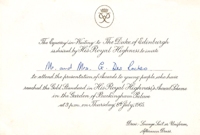 The Equerry-in-Waiting to The Duke of Edinburgh
is desired by His Royal Highness to invite
Mr. and Mrs.
to attend the presentation of Awards to young people who have
reached the Gold Standard in His Royal Highness's Award Scheme
in the Garden of Buckingham Palace
at 3 p.m. on Thursday, July, 1965
Dress: Lounge Suit or Uniform,
Afternoon Dress